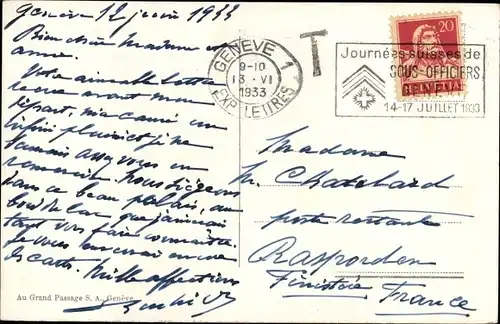 Genève 12 juin 1933
Bien chère Madame et
amie.
Votre aimable lettre
reçue avant mon
départ, m'a causé un
infini plaisir et je ne
saurais assez vous en
remercier. Nous
dans ce beau palais, au
bord du lac que j'aimerais
tant vous faire connaître.
Je vous
les cartes. Mille affections
GENÈVE 1
9-10
13 - VI
1933
EXP. LETTRES
T
20
HELVETIA
Journées suisses de
SOUS-OFFICIERS
GENÈVE
14-17 JUILLET 1933
Madame
M. Chatelard
poste restante
Rosporden
Finistère France
Au Grand Passage S. A., Genève.